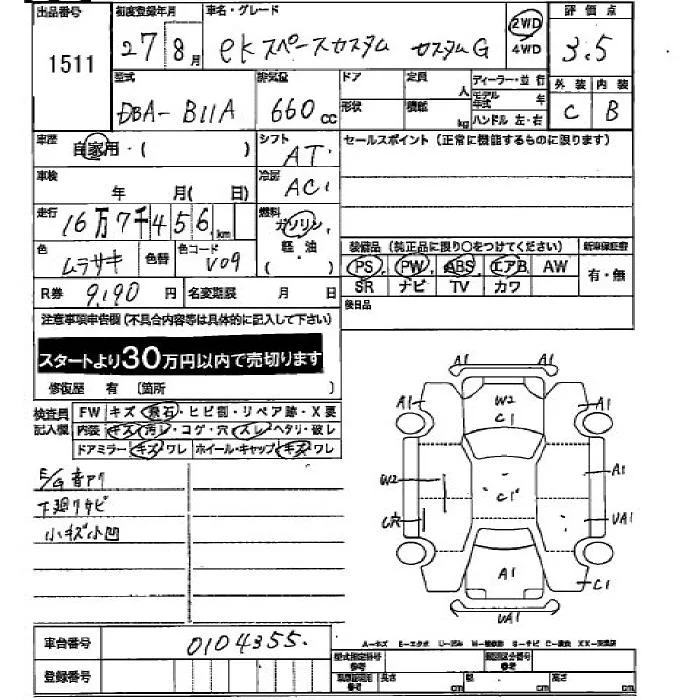 出品番号 初度登録年月 車名・グレード 評価点
1511 27 8月 eKスペースカスタム カスタムG 2WD 4WD 3.5
型式 排気量 ドア 定員 ディーラー・並行 外装 内装
DBA- B11A 660 cc 形状 積載 人 kg モデル年式 年 ハンドル 左・右 C B
車歴 自家用・( ) シフト AT セールスポイント (正常に機能するものに限ります)
車検 年 月( 日) 冷房 AC
走行 16万7千456 km 燃料 ガソリン・軽・油 ( )
色 ムラサキ 色替 色コード V09 装備品 (純正品に限り○をつけてください) 新車保証書
PS PW ABS エアB AW 有・無
SR ナビ TV カワ
R券 9,190 円 名変期限 月 日 後日品
注意事項申告欄 (不具合内容等は具体的に記入して下さい)
スタートより30万円以内で売切ります
修復歴 有 〔箇所 〕
検査員記入欄 FW キズ・飛石・ヒビ割・リペア跡・X要
内装 キズ・汚レ・コゲ・穴・スレ・ヘタリ・破レ
ドアミラー キズ・ワレ ホイール・キャップ キズ・ワレ
E/G音アリ
下廻りサビ
小キズ小凹
A1 A1
A1 W2 C1 A1
W2 C1 A1
C穴 UA1
A1 C1
UA1
車台番号 0104355
登録番号
型式指定番号 参考 類別区分番号 参考
長さ cm 幅 cm 高さ cm